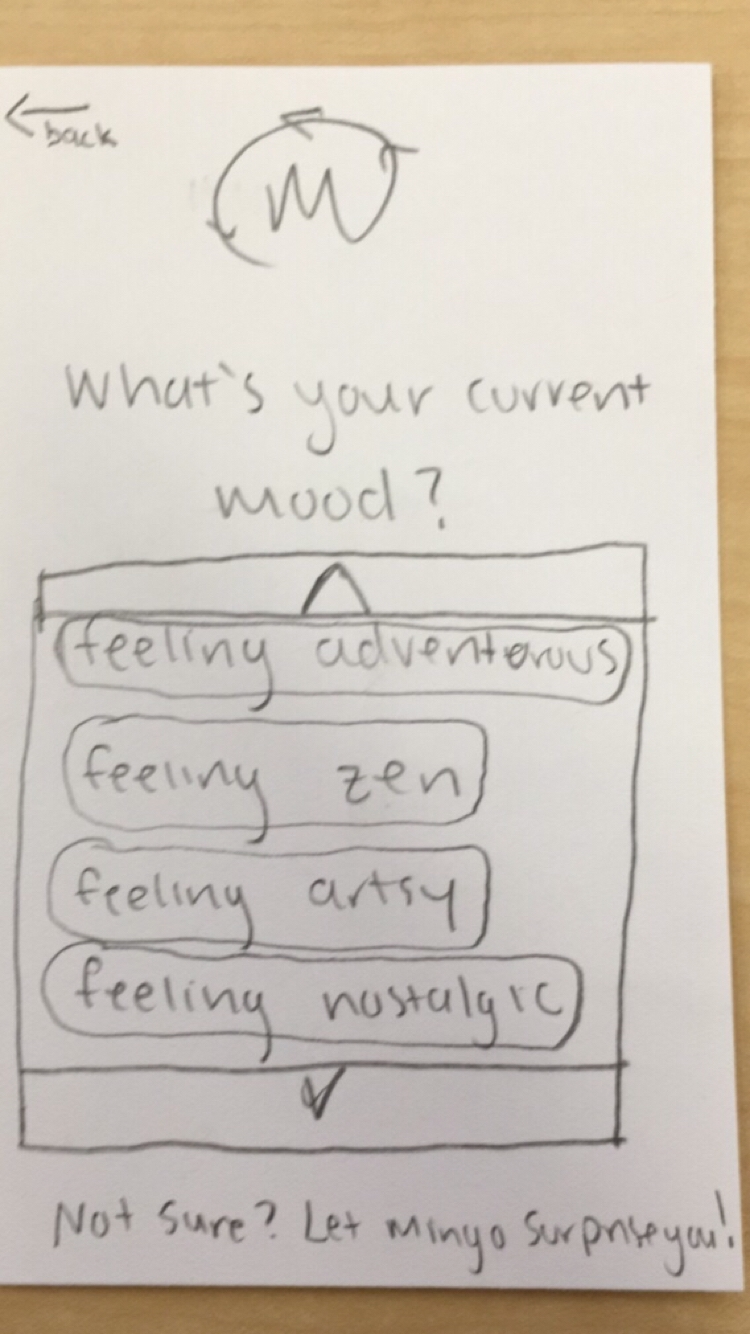 back
M
What's your current
mood?
feeling adventerous
feeling zen
feeling artsy
feeling nostalgic
Not sure? Let Mingo surprise you!